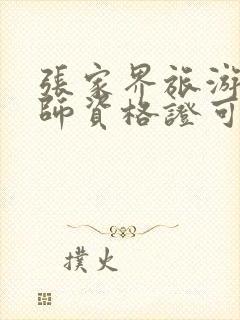 張家界旅游
師資格證可
撲火